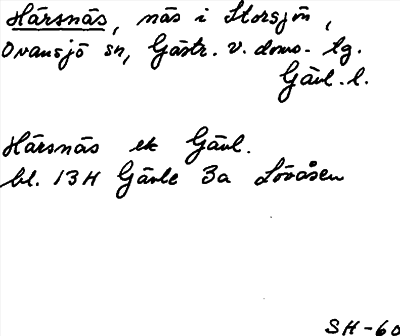 Härsnäs, näs i Storsjön,
Ovansjö sn, Gästr. v. doms. tg.
Gävl. l.
Härsnäs ek Gävl.
bl. 13H Gävle 3a Lövåsen
SH-60